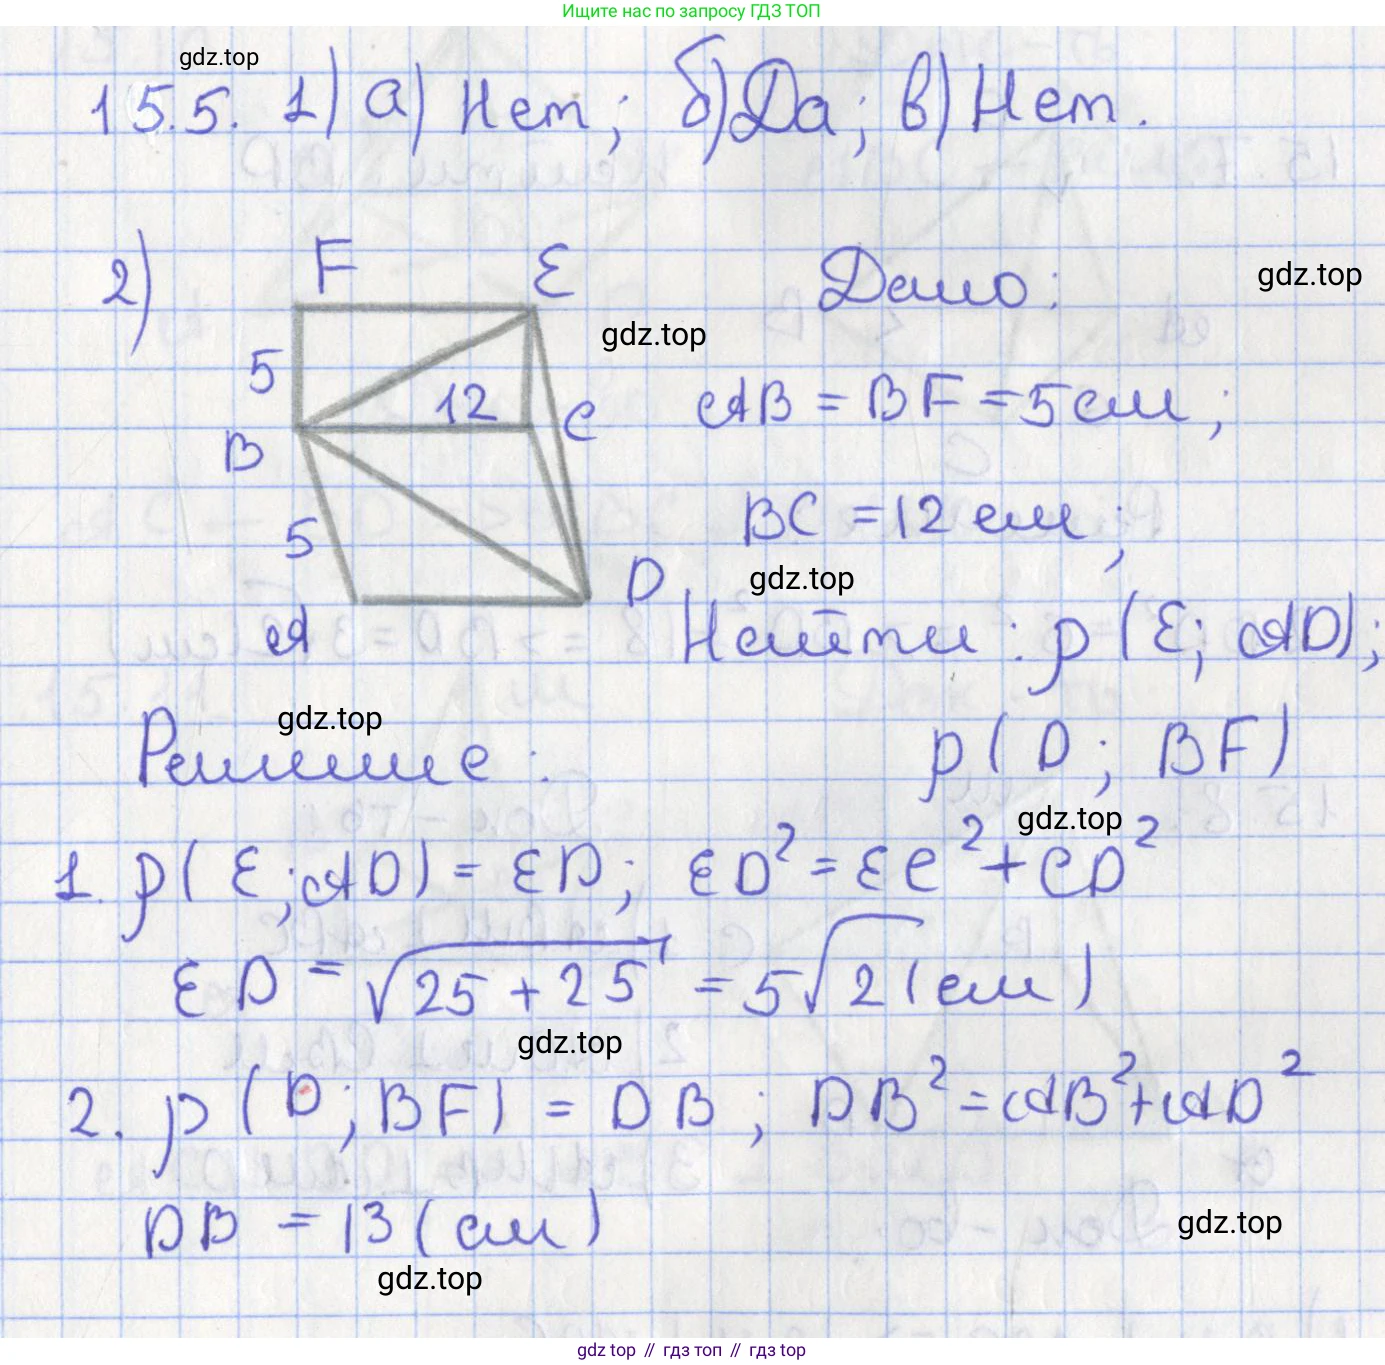 Ищите нас по запросу ГДЗ ТОП
gdz.top
15.5. 1) а) Нет; б) Да; в) Нет.
2)
F E
Дано:
gdz.top
gdz.top
5
12
C
AB = BF = 5 см;
B
BC = 12 см;
5
gdz.top
D
A
Найти: p(E; AD);
gdz.top
Решение:
p(D; BF)
gdz.top
1. p(E; AD) = ED; ED² = EC² + CD²
ED = √25 + 25 = 5√2 (см)
gdz.top
2. p(D; BF) = DB; DB² = AB² + AD²
DB = 13 (см)
gdz.top
gdz.top
gdz top // гдз топ // гдз top